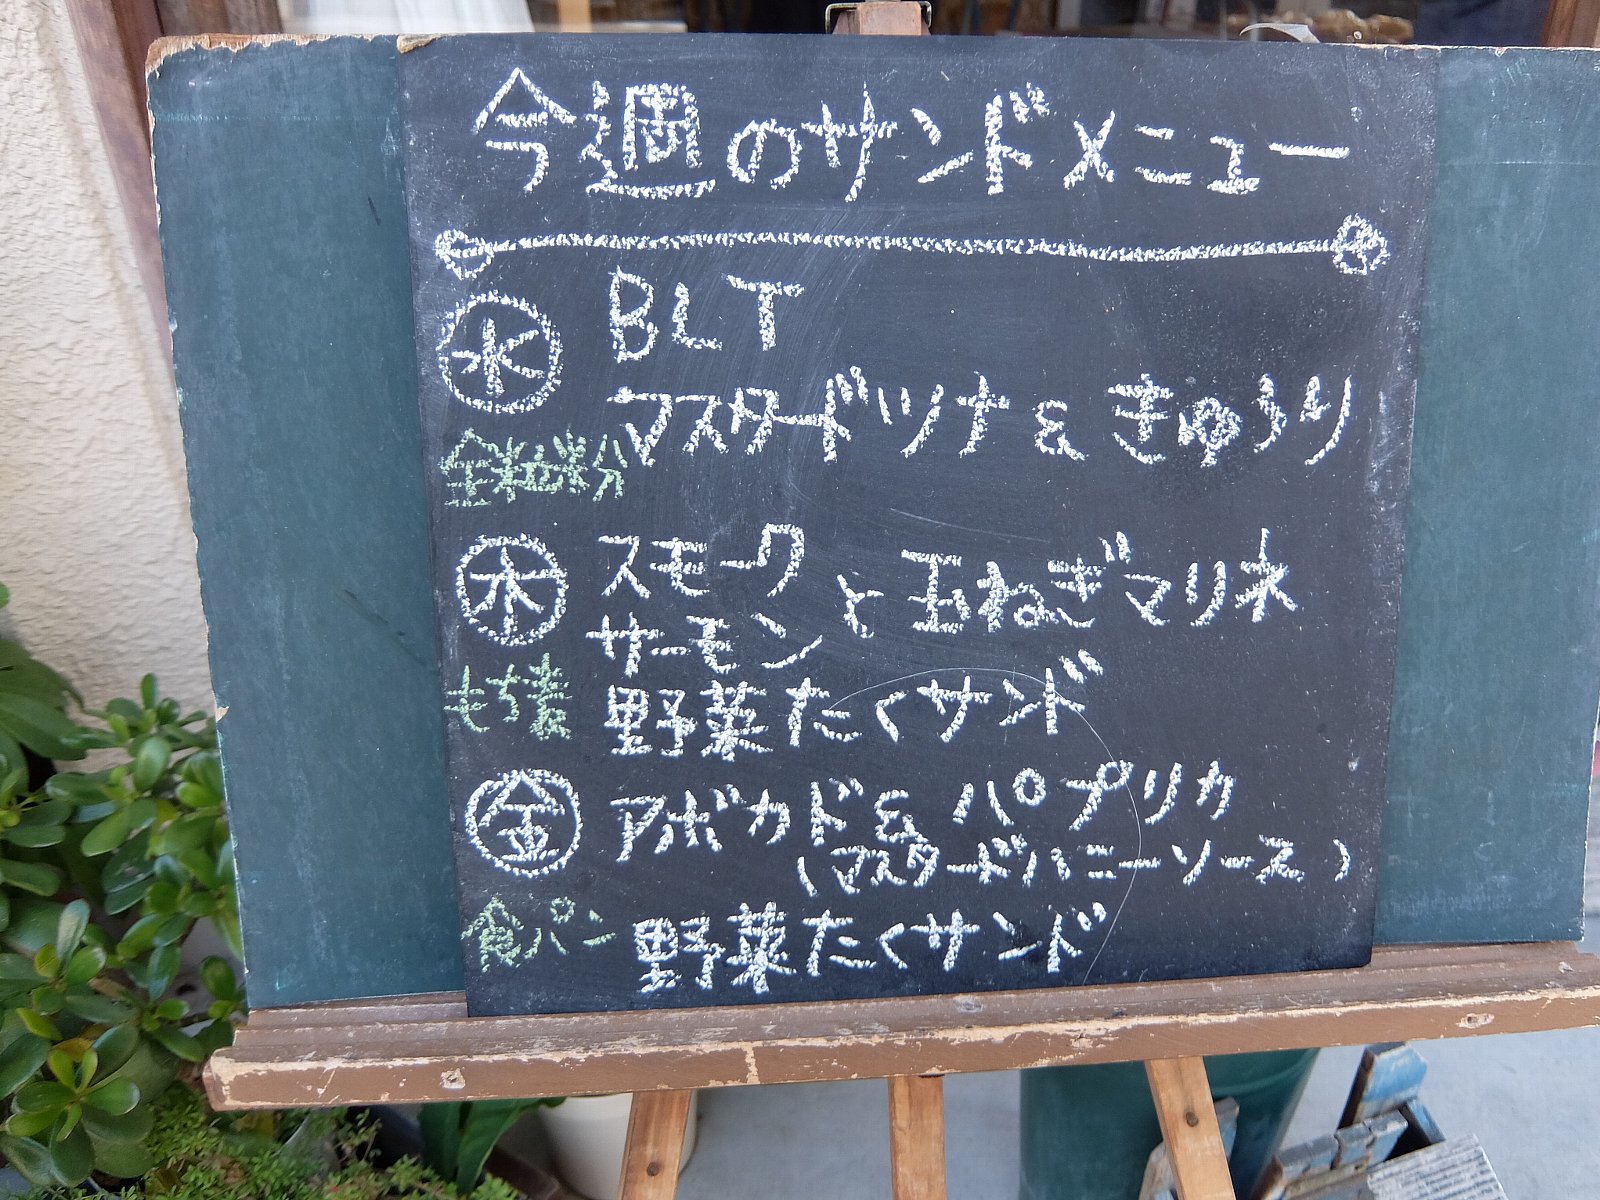 今週のサンドメニュー
水
BLT
マスタードツナ&きゅうり
全粒粉
木
スモークサーモンと玉ねぎマリネ
もち麦
野菜たくサンド
金
アボカド&パプリカ
(マスタードハニーソース)
食パン
野菜たくサンド